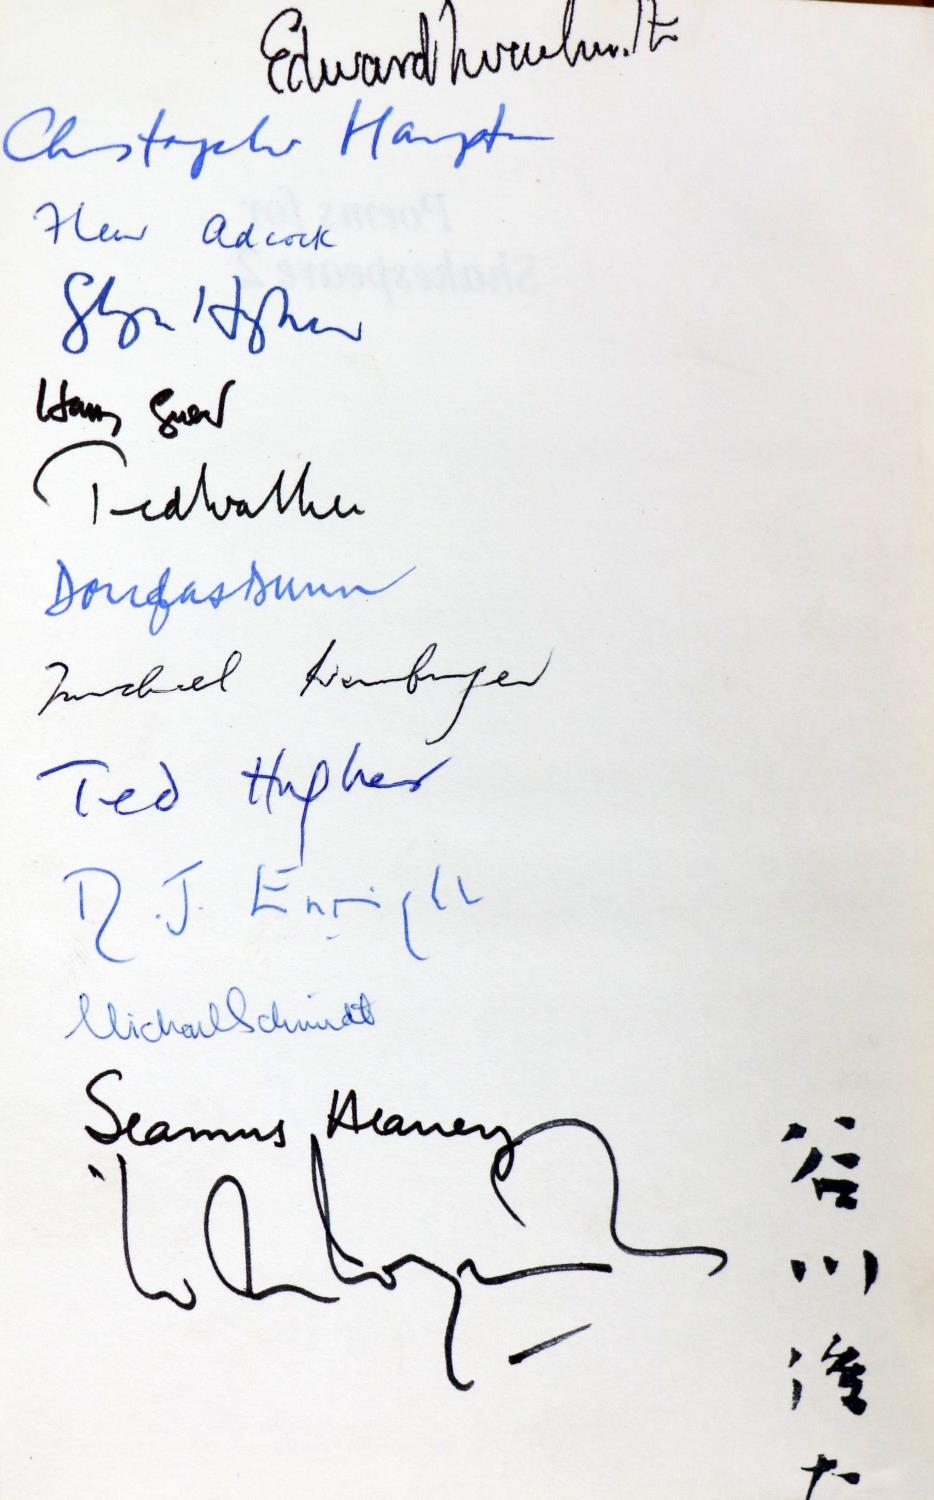 Edward Lucie-Smith
Christopher Hampton
Fleur Adcock
Glyn Hughes
Harry Guest
Ted Walker
Douglas Dunn
Michael Hamburger
Ted Hughes
D. J. Enright
Michael Schmidt
Seamus Heaney
谷川俊太
Poems for
Shakespeare 2